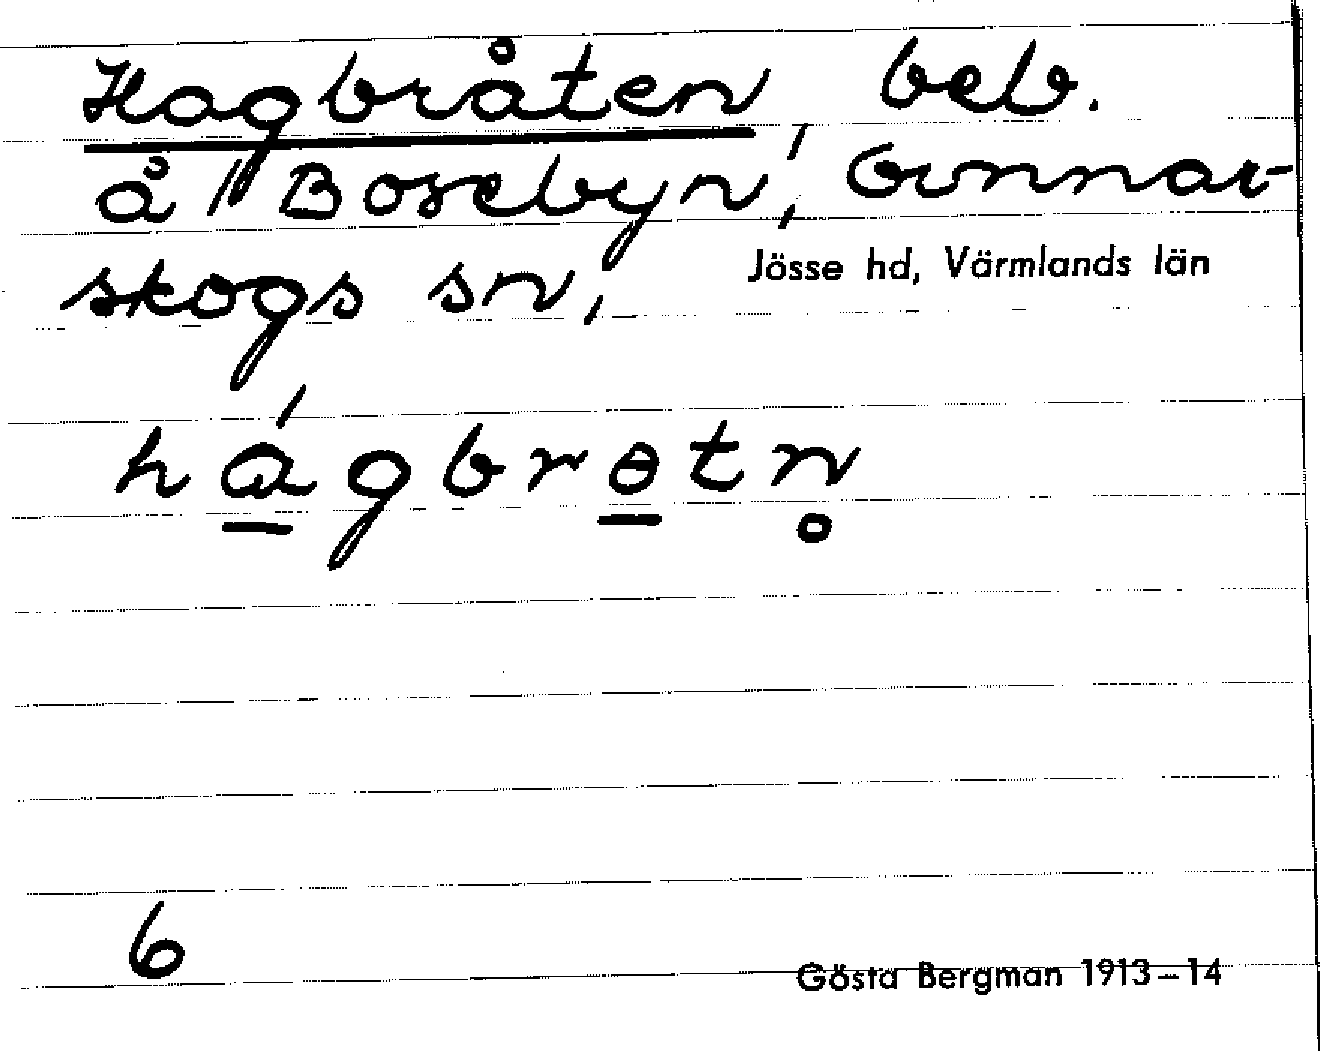 Hagbråten, beb.
å Bosebyn, Gunnar-
skogs sn,
Jösse hd, Värmlands län
hágbrɵtn̥
6
Gösta Bergman 1913–14